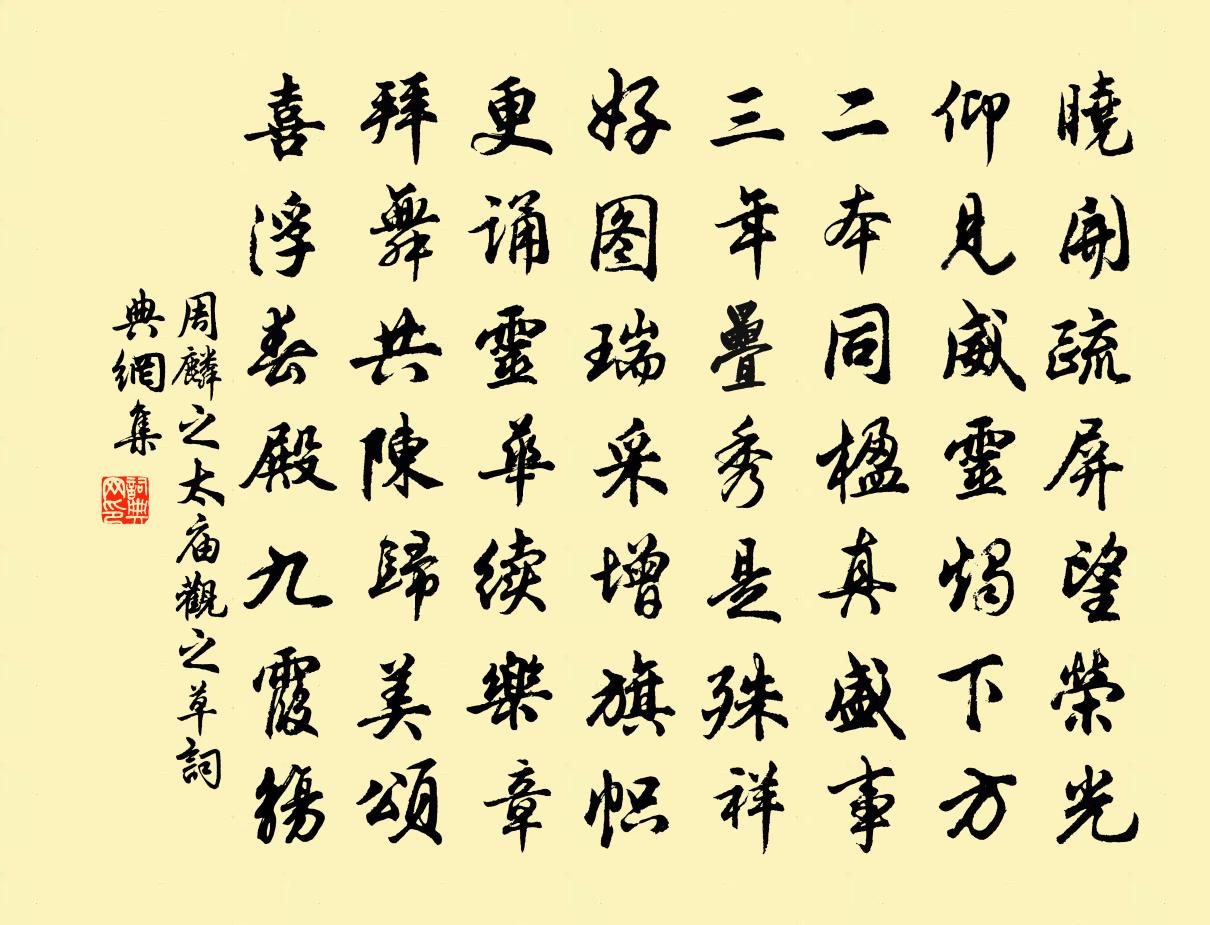 曉開疏屏望榮光
仰見威靈燭下方
二本同楹真盛事
三年疊秀是殊祥
好图瑞采增旗帜
更诵靈華续樂章
拜舞共陳歸美頌
喜浮春殿九霞觴
周麟之太庙觀之草詞
典網集
詞典
网印